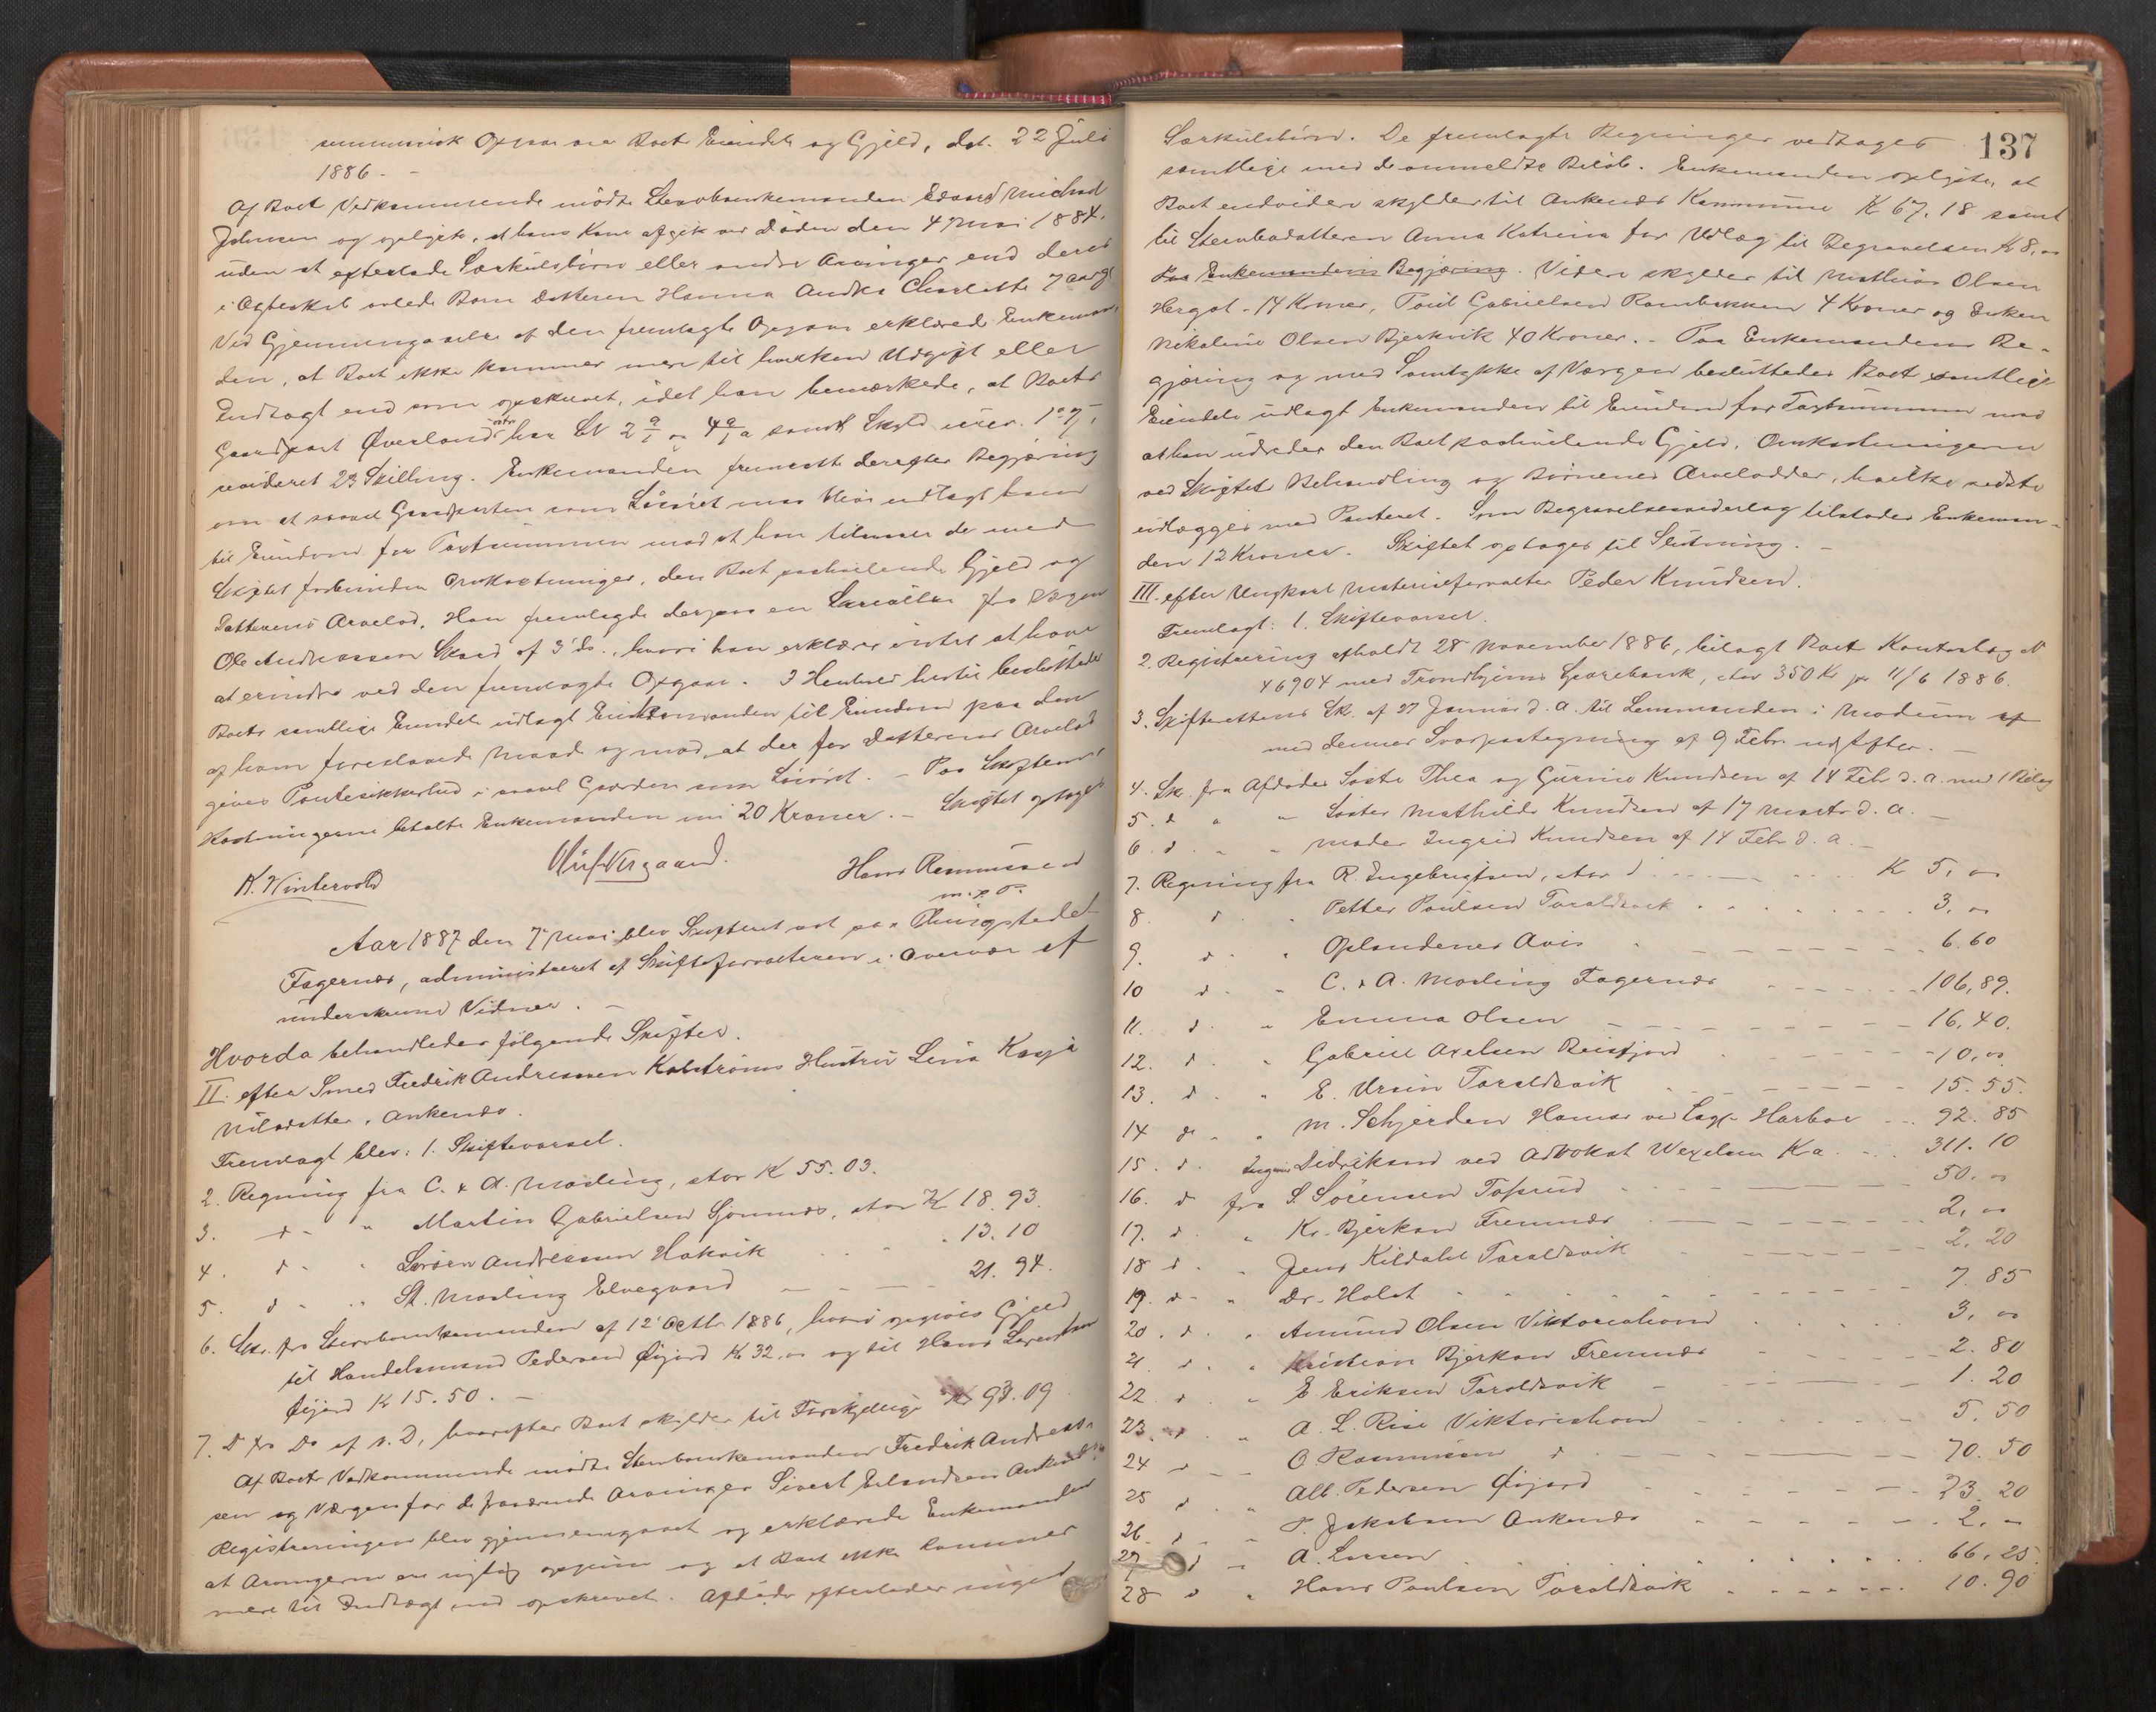 summarisk Opgave over Boets Eiendele og Gjeld, dat. 22 Juli
1886. -
Af Boets Vedkommende mødte Stervboenkemanden Edvard Michael
Johnsen og oplyste, at hans Kone afgik ved Døden den 4 Mai 1884.
uden at efterlade Særkulsbørn eller andre Arvinger end deres
i Ægteskab avlede Barn Datteren Hanna Andrea Charlotte 7 aar gl.
Ved Gjennemgaaelse af den fremlagte Opgave erklærede Enkeman-
den, at Boet ikke kommer mere til hverken Udgift eller
Indtægt end som opskrevet, idet han bemærkede, at Boets
Gaardpart Øverland har LN 2 og 4 a samt Skyld
revideret 23 Skilling. Enkemanden fremsatte derefter Begjæring
om at saavel Gaardparten som Løsøret maa blive udlagt ham
til Eiendom for Taxtsummen mod at han tilsvarer de med
Skiftet forbundne Omkostninger, den Boet paahvilende Gjeld og
Datterens Arvelod. Han fremlagde derpaa en Skrivelse fra Værgen
Ole Andreassen Skaad af 3 ds., hvori han erklærer intet at have
at erindre ved den fremlagte Opgave. I Henhold hertil besluttedes
Boets samtlige Eiendele udlagt Enkemanden til Eiendom paa den
af ham foreslaaede Maade og mod, at der for Datterens Arvelod
gives Pantesikkerhed i saavel Gaarden som Løsøret. - Paa Skiftets
Kostningerne betalte Enkemanden mi 20 Kroner. - Skiftet optoges
K. Vintervold Hans Rasmussen
m. p. P.
Aar 1887 den 7 Mai blev Skifteret sat paa Thingstedet
Fagernæs, administreret af Skifteforvalteren i Overvær af
underskrevne Vidner. -
Hvorda behandledes følgende Skifter.
II. efter Smed Fredrik Andreassen Kalstrøms Hustru Lena Kasja
Nilsdatter, Ankenæs.
Fremlagt blev: 1. Skiftevarsel.
2. Regning fra C. & A. Mosling, stor K 55.03.
3. d - " Martin Gabrielsen Gomnæs, stor K 18.93.
4. d - " Søren Andreassen Hakvik . . 13.10
5. d - " St. Mosling Elvegaard - - - 21.94.
6. Skr. fra Stervboenkemanden af 12 Octbr. 1886, hvori opgives Gjeld
til Handelsmand Pedersen Øijord Kr 32,00 og til Hans Larentsen
Øijord K 15.50. -
7. D fra Do af s. D, hvorefter Boet skylder til Forskjellige Kr 93.09
Af Boets Vedkommende mødte Stervboenkemanden Fredrik Andreas-
sen og Værgen for de fraværende Arvinger Sivert Erlandsen Ankenæs.
Registreringen blev gjennemgaaet og erklærede Enkemanden
at Arvingerne ere rigtig opgivne og at Boet ikke kommer
mere til Indtægt end opskrevet. Afdøde efterlader ingen
137
Særkulsbørn. De fremlagte Regninger vedtages
samtlige med de anmeldte Beløb. Enkemanden oplyste, at
Boet endvidere skylder til Ankenæs Kommune K 67.18 samt
til Stervbodatteren Anna Katrina for Udlæg til Begravelsen K 8,00
Paa Enkemandens Begjæring. Videre skyldes til Mathias Olsen
Hergot - 14 Kroner, Poul Gabrielsen Rombakken 4 Kroner og Enken
Nikoline Olsen Bjerkvik 40 Kroner. - Paa Enkemandens Be-
gjæring og med Samtykke af Værgen besluttedes Boets samtlige
Eiendele udlagt Enkemanden til Eiendom for Taxtsummen mod
at han udreder den Boet paahvilende Gjeld, Omkostningerne
ved Skiftets Behandling og Børnenes Arvelodder, hvilke sidste
udlægges mod Panteret. Som Begravelsesvederlag tilstodes Enkeman-
den 12 Kroner. Skiftet optages til Slutning. -
III. efter Ungkarl Materialforvalter Peder Knudsen.
Fremlagt: 1. Skiftevarsel.
2. Registrering afholdt 28 November 1886, bilagt Boets Kontrabog N
46904 med Trondhjems Sparebank, stor 350 Kr pr 11/6 1886.
3. Skifterettens Sk. af 27 Januar d. A. til Lensmanden i Modum af
med dennes Svarpaategning af 9 Febr. -
4. Skr. fra Afdødes Søstre Thea og Gurine Knudsen af 14 Febr d. A. med 1 Bilag
5. d " " Søster Mathilde Knudsen af 17 Marts d. A. -
6. d. " " Moder Ingrid Knudsen af 14 Febr d. A. -
7. Regning fra R. Ingebrigtsen, stor d . . . . K 5,00
8. d " Petter Poulsen Taraldsvik . . . . 3,00
9. d " Oplandenes Avis - - - - 6.60
10 d - " C. & A. Mosling Fagernæs - - - 106,89.
11. d " Emma Olsen - - - - 16.40.
12. d. " Gabriel Axelsen Beisfjord - - - 10,00
13. d " E. Ursin Taraldsvik - - - - 15.55.
14 d " M. Schjerden Hamar ved Sagf. Harboe - - 92.85
15. d. Ingeniør Didriksen ved Advokat Wexelsen K a. - - 311.10
16. d fra S. Sørensen Tofsrud - - - 50.00
17. d. " Kr. Bjerkan Fremnæs - - - 2,00
18 d " Jens Kildahl Taraldsvik - - - 2.20
19. d - " Dr. Holst - - - - 7.85
20. d. " Amund Olsen Viktoriahavn . . . 3,00
21. d. " Kristian Bjerkan Fremnæs - - - 2.80
22 d " E. Eriksen Taraldsvik - - - 1.20
23. d " A. L. Rise Viktoriahavn - - - 5.50
24 d - O Rasmussen d - - - 70.50
25 d " Alb. Pedersen Øijord - - - 33.20
26. d " P. Jakobsen Ankenæs - - - 2.-
27 d - A. Larsen . . . 66.25.
28 d " Hans Poulsen Taraldsvik . . . 10.90